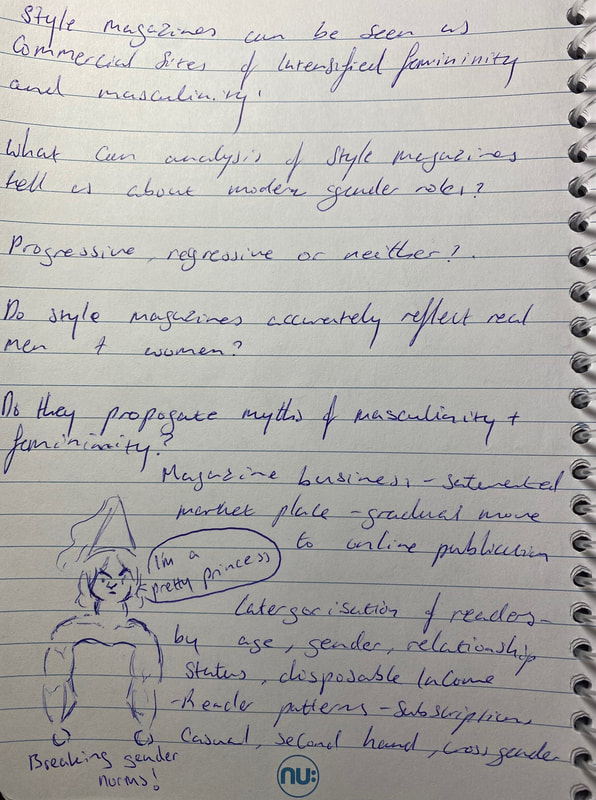 Style magazines can be seen as
commercial sites of intensified femininity
and masculinity'
What can analysis of style magazines
tell us about modern gender roles?
Progressive, regressive or neither?.
Do style magazines accurately reflect real
men + women?
Do they propogate myths of masculinity +
femininity?
Magazine business - saturated
market place - gradual move
to online publication
I'm a
pretty princess
Catergorisation of readers -
by age, gender, relationship
status, disposable income
- Reader patterns - Subscription,
Casual, second hand, cross gender
Breaking gender
norms!
nu: